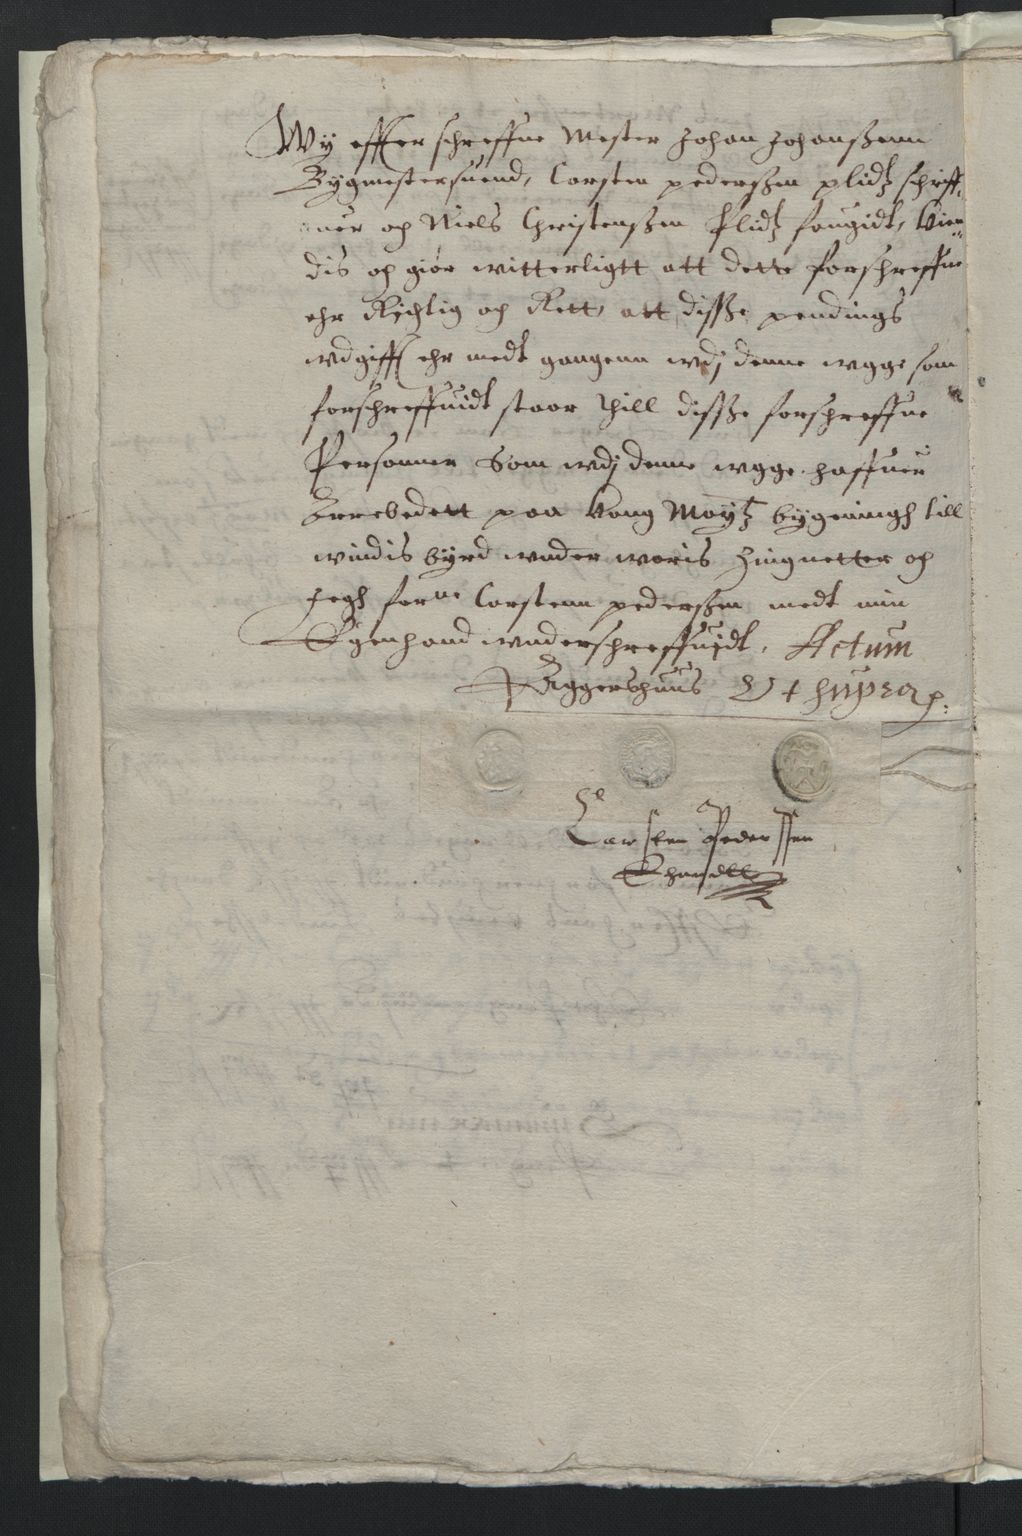 Wy effter schreffne Mester Johan Johanßenn
Bygmestersuend, Carsten pederßen plidtz schriff,,
uer och Niels Christenßen Plidtz fougidt, Kien,,
dis och giør witterligtt att dette forschreffne
ehr Richtig och Rett, att disße pendings
wdgifft ehr medt gangenn wdj denne wgge som
forschreffuidt staar thill disße forschreffne
Personner Som wdj denne wgge haffuer
Arrebedett paa Kong Maytz bygningh till
windis byrd wnder woris Zingnetter och
Jegh forne Carstenn pederßen medt min
Egenhand wnderschreffuidt, Actum
Aggershuus Vt supra p:
Carsten Pederssen
Ehandtt